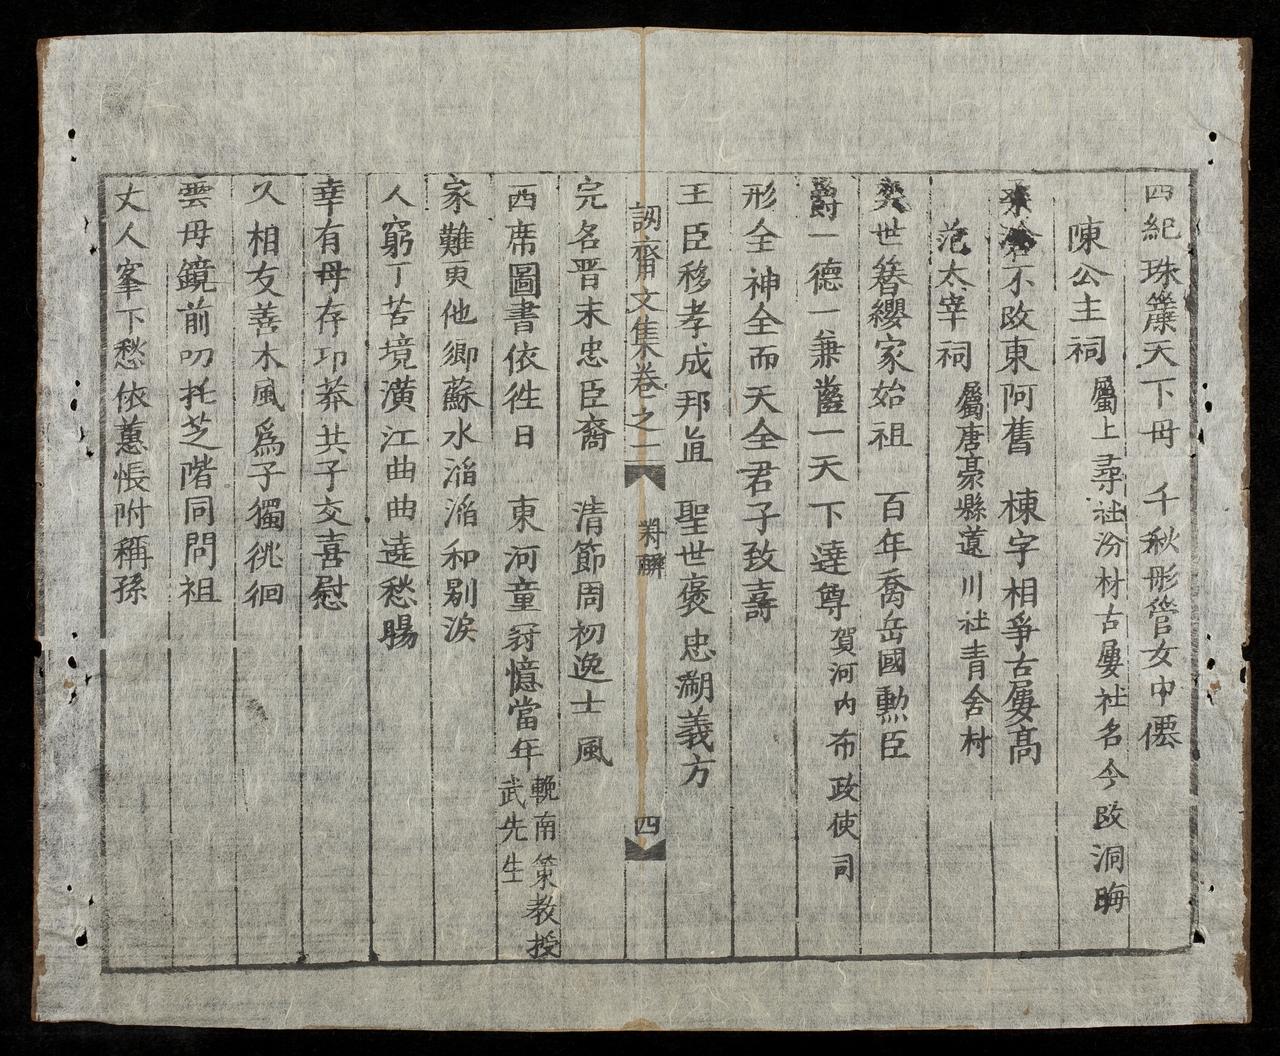 四紀珠簾天下母　千秋彤管女中僊
陳公主祠　屬上尋社汾材古屢社名今改洞晦
棠浍不改東阿舊　棟宇相爭古屢髙
范太宰祠　屬唐豪縣遠川社青舍村
奕世簪纓家始祖　百年喬岳國勲臣
爵一德一兼齒一天下達尊　賀河内布政使司
形全神全而天全君子致壽
王臣移孝成邦直　聖世褒忠溯義方
訒齋文集卷之二　對聯　四
完名晋末忠臣裔　清節周初逸士風
西席圖書依徃日　東河童冠憶當年　輓南策教授武先生
家難更他鄉蘇水滔滔和别淚
人窮丁苦境潢江曲曲遶愁腸
幸有母存邛莽共子交喜慰
久相友善木風爲子獨徘徊
雲母鏡前叨托芝階同問祖
丈人峯下愁依蕙悵附稱孫